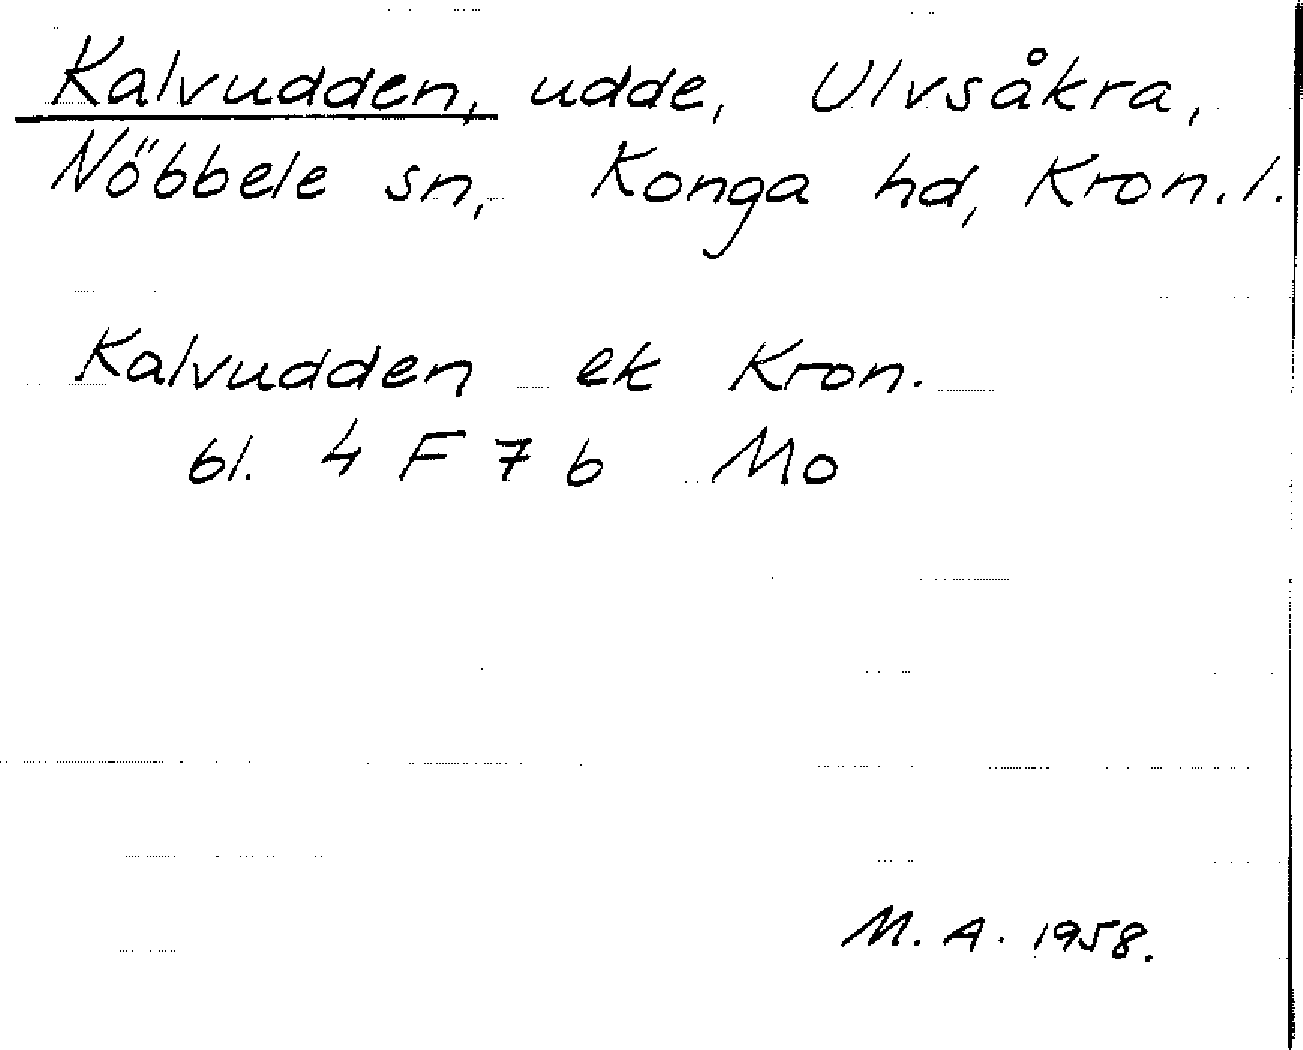 Kalvudden, udde, Ulvsåkra,
Nöbbele sn, Konga hd, Kron. l.
Kalvudden ek Kron.
bl. 4 F 7 b Mo
M. A. 1958.